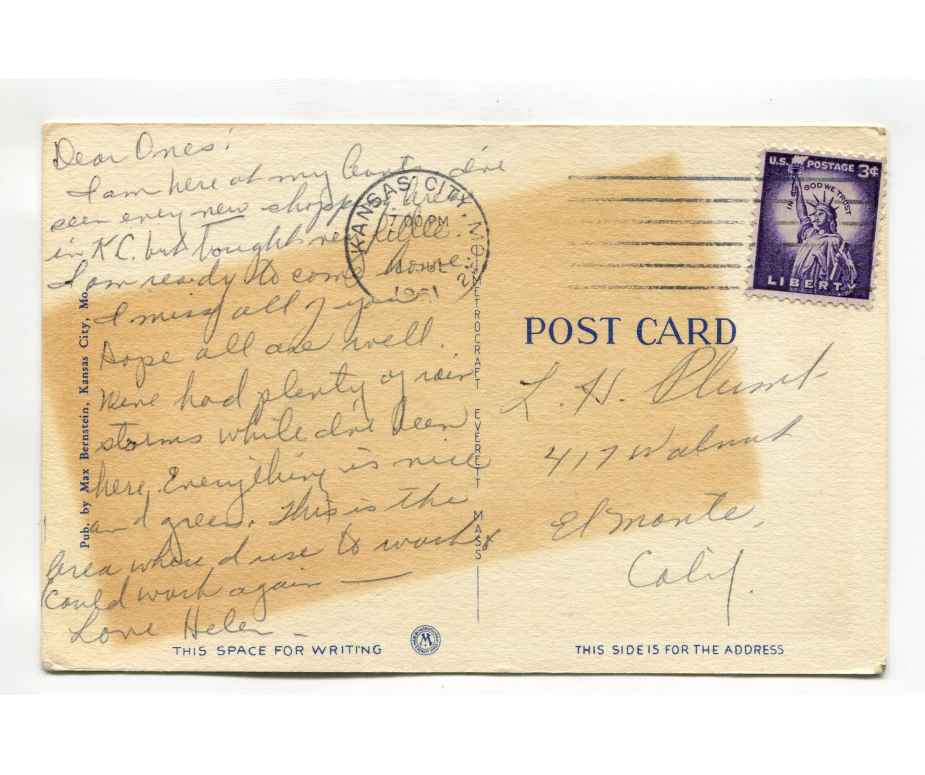 Dear Ones!
I am here at my Aunts. I've
seen every new shopping area
in KC. but bought very little.
I am ready to come home.
I miss all of you.
Hope all are well.
Have had plenty of rain
storms while I've been
here. Everything is nice
and green. This is the
area where I use to work &
could work again —
Love Helen —
THIS SPACE FOR WRITING
Pub. by Max Bernstein, Kansas City, Mo.
METROCRAFT EVERETT MASS
KANSAS CITY, MO.
7:00 PM
U.S. POSTAGE 3¢
IN GOD WE TRUST
LIBERTY
POST CARD
L. H. Plumb
417 Walnut
El Monte,
Calif
THIS SIDE IS FOR THE ADDRESS